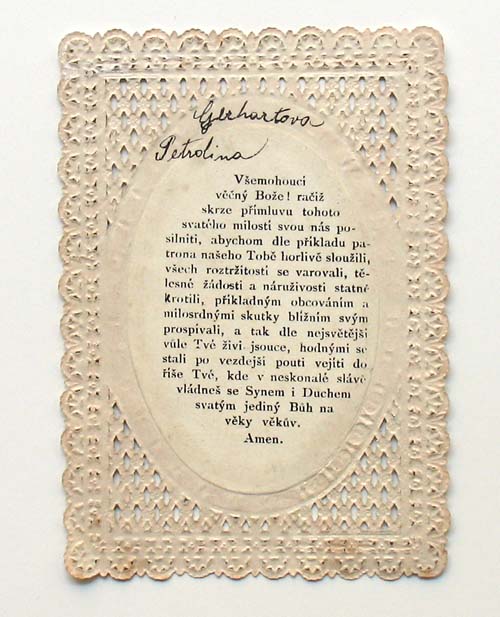 Gerhartova
Petrolina
Všemohoucí
věčný Bože! račiž
skrze přímluvu tohoto
svatého milosti svou nás po-
silniti, abychom dle příkladu pa-
trona našeho Tobě horlivě sloužili,
všech roztržitostí se varovali, tě-
lesné žádosti a náruživosti statně
krotili, příkladným obcováním a
milosrdnými skutky bližním svým
prospívali, a tak dle nejsvětější
vůle Tvé živi jsouce, hodnými se
stali po vezdejší pouti vejíti do
říše Tvé, kde v neskonalé slávě
vládneš se Synem i Duchem
svatým jediný Bůh na
věky věkův.
Amen.